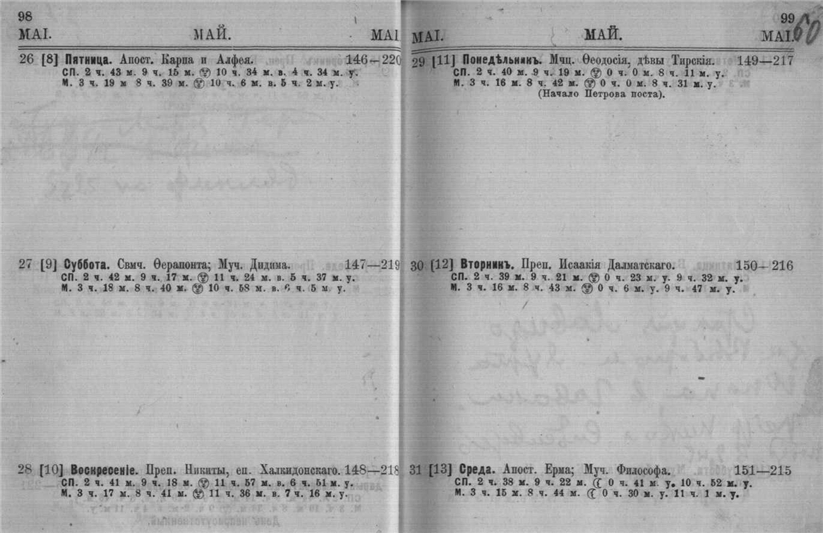 98
MAI. МАЙ. MAI
26 [8] Пятница. Апост. Карпа и Алфея. 146—220
СП. 2 ч. 43 м. 9 ч. 15 м. 10 ч. 34 м. в. 4 ч. 34 м. у.
М. 3 ч. 19 м 8 ч. 39 м. 10 ч. 6 м. в. 5 ч. 2 м. у.
27 [9] Суббота. Свмч. Ѳерапонта; Муч. Дидима. 147—219
СП. 2 ч. 42 м. 9 ч. 17 м. 11 ч. 24 м. в. 5 ч. 37 м. у.
М. 3 ч. 18 м. 8 ч. 40 м. 10 ч. 58 м. в. 6 ч. 5 м. у.
28 [10] Воскресеніе. Преп. Никиты, еп. Халкидонскаго. 148—218
СП. 2 ч. 41 м. 9 ч. 18 м. 11 ч. 57 м. в. 6 ч. 51 м. у.
М. 3 ч. 17 м. 8 ч. 41 м. 11 ч. 36 м. в. 7 ч. 16 м. у.
99
MAI. МАЙ. MAI.
60
29 [11] Понедѣльникъ. Мчц. Ѳеодосія, дѣвы Тирскія. 149—217
СП. 2 ч. 40 м. 9 ч. 19 м. 0 ч. 0 м. 8 ч. 11 м. у.
М. 3 ч. 16 м. 8 ч. 42 м. 0 ч. 0 м. 8 ч. 31 м. у.
(Начало Петрова поста).
30 [12] Вторникъ. Преп. Исаакія Далматскаго. 150—216
СП. 2 ч. 39 м. 9 ч. 21 м. 0 ч. 23 м. у. 9 ч. 32 м. у.
М. 3 ч. 16 м. 8 ч. 43 м. 0 ч. 6 м. у. 9 ч. 47 м. у.
31 [13] Среда. Апост. Ерма; Муч. Философа. 151—215
СП. 2 ч. 38 м. 9 ч. 22 м. 0 ч. 41 м. у. 10 ч. 52 м. у.
М. 3 ч. 15 м. 8 ч. 44 м. 0 ч. 30 м. у. 11 ч. 1 м. у.